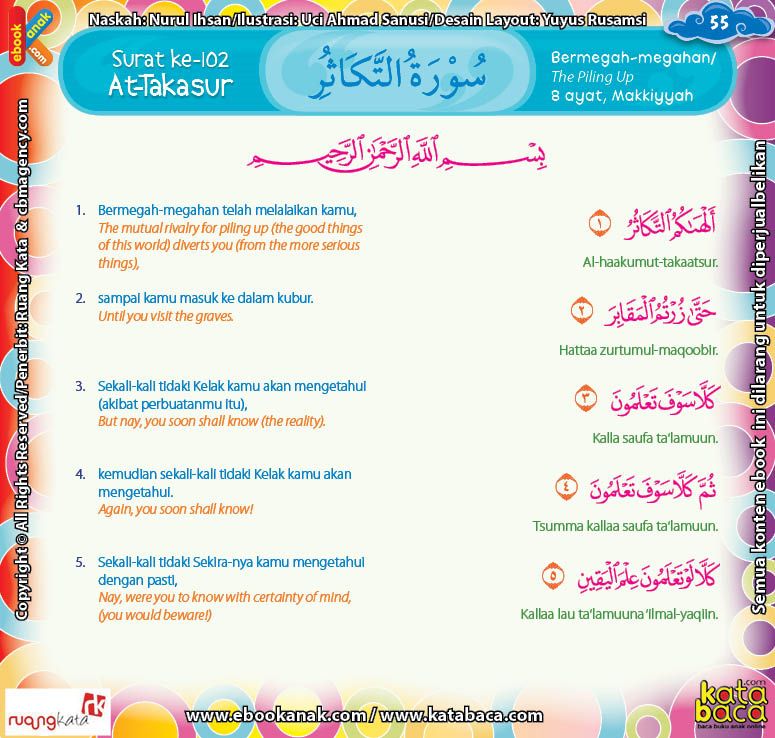 Naskah: Nurul Ihsan/Ilustrasi: Uci Ahmad Sanusi/Desain Layout: Yuyus Rusamsi
55
ebook
anak.com
Surat ke-102
At-Takasur
سُوْرَةُ التَّكَاثُرِ
Bermegah-megahan/
The Piling Up
8 ayat, Makkiyyah
بِسْمِ ٱللَّهِ ٱلرَّحْمَٰنِ ٱلرَّحِيمِ
1. Bermegah-megahan telah melalaikan kamu,
The mutual rivalry for piling up (the good things
of this world) diverts you (from the more serious
things),
أَلْهَىٰكُمُ ٱلتَّكَاثُرُ ١
Al-haakumut-takaatsur.
2. sampai kamu masuk ke dalam kubur.
Until you visit the graves.
حَتَّىٰ زُرْتُمُ ٱلْمَقَابِرَ ٢
Hattaa zurtumul-maqoobir.
3. Sekali-kali tidak! Kelak kamu akan mengetahui
(akibat perbuatanmu itu),
But nay, you soon shall know (the reality).
كَلَّا سَوْفَ تَعْلَمُونَ ٣
Kalla saufa ta'lamuun.
4. kemudian sekali-kali tidak! Kelak kamu akan
mengetahui.
Again, you soon shall know!
ثُمَّ كَلَّا سَوْفَ تَعْلَمُونَ ٤
Tsumma kallaa saufa ta'lamuun.
5. Sekali-kali tidak! Sekira-nya kamu mengetahui
dengan pasti,
Nay, were you to know with certainty of mind,
(you would beware!)
كَلَّا لَوْ تَعْلَمُونَ عِلْمَ ٱلْيَقِينِ ٥
Kallaa lau ta'lamuuna 'ilmal-yaqiin.
Copyright © All Rights Reserved/Penerbit: Ruang Kata & cbmagency.com
Semua konten ebook ini dilarang untuk diperjualbelikan
ruangkata
rk
www.ebookanak.com / www.katabaca.com
kata
baca
.com
baca buku anak online